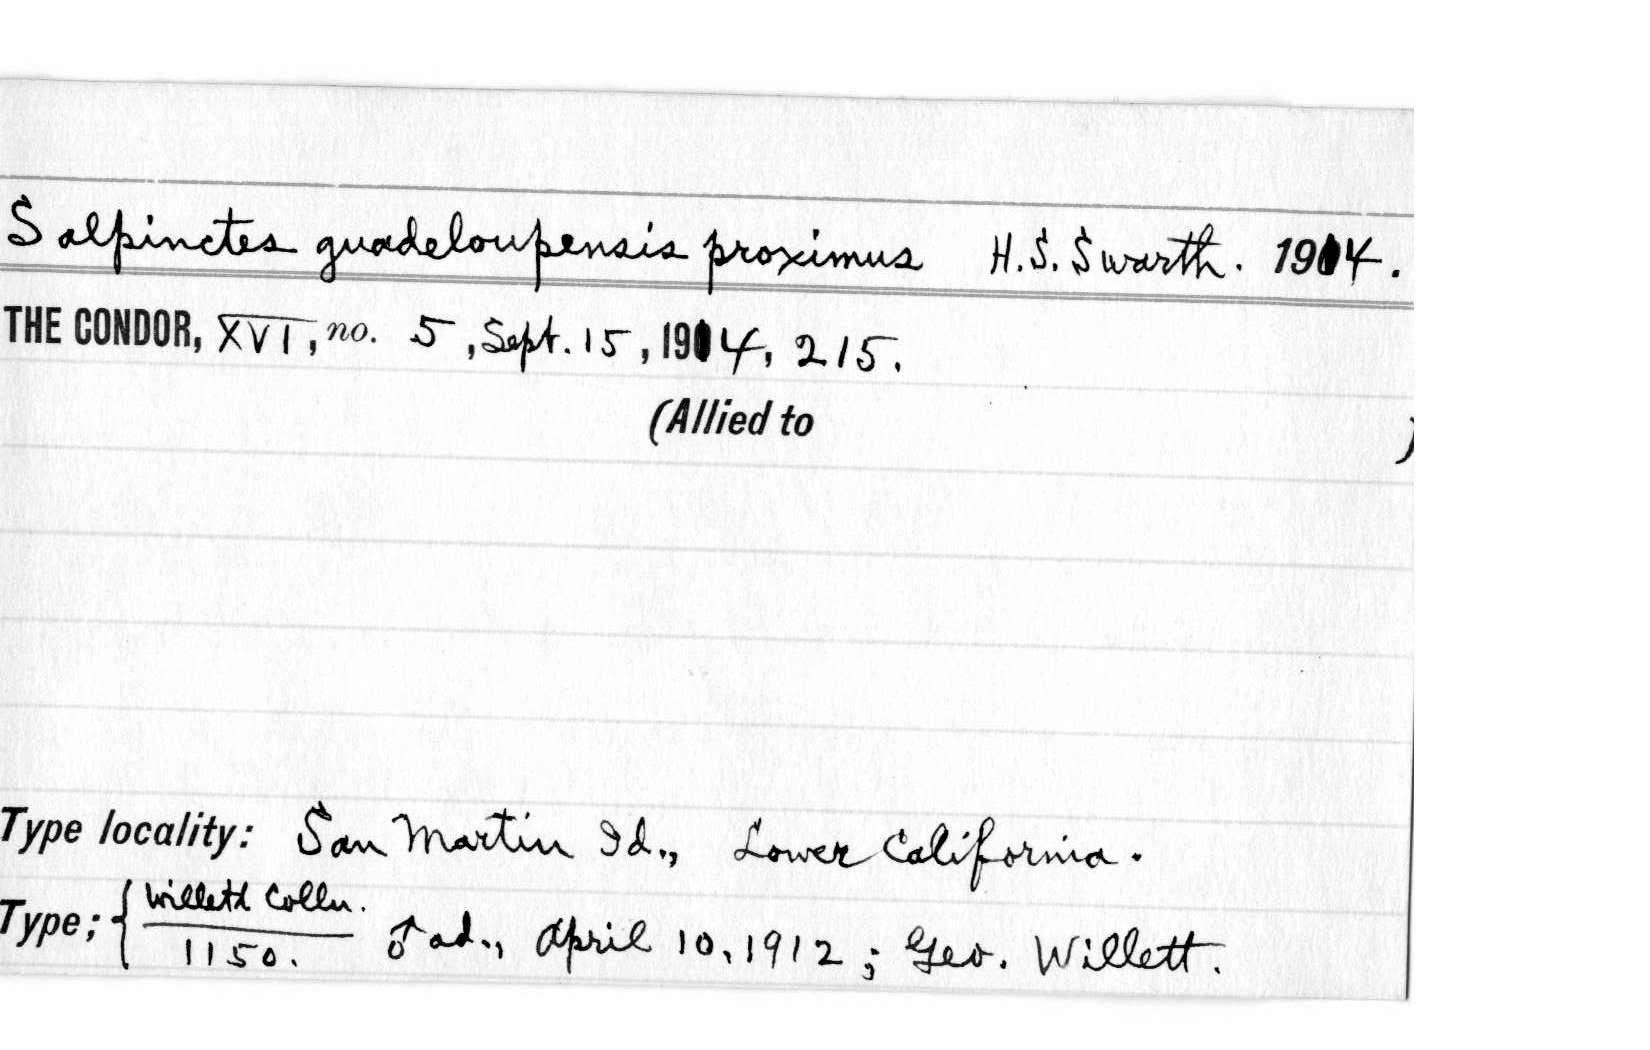 Salpinctes guadeloupensis proximus H.S. Swarth. 1914.
THE CONDOR, XVI, no. 5, Sept. 15, 1914, 215.
(Allied to )
Type locality: San Martin Id., Lower California.
Type; { Willett Colln.
1150. ♂ ad., April 10, 1912; Geo. Willett.